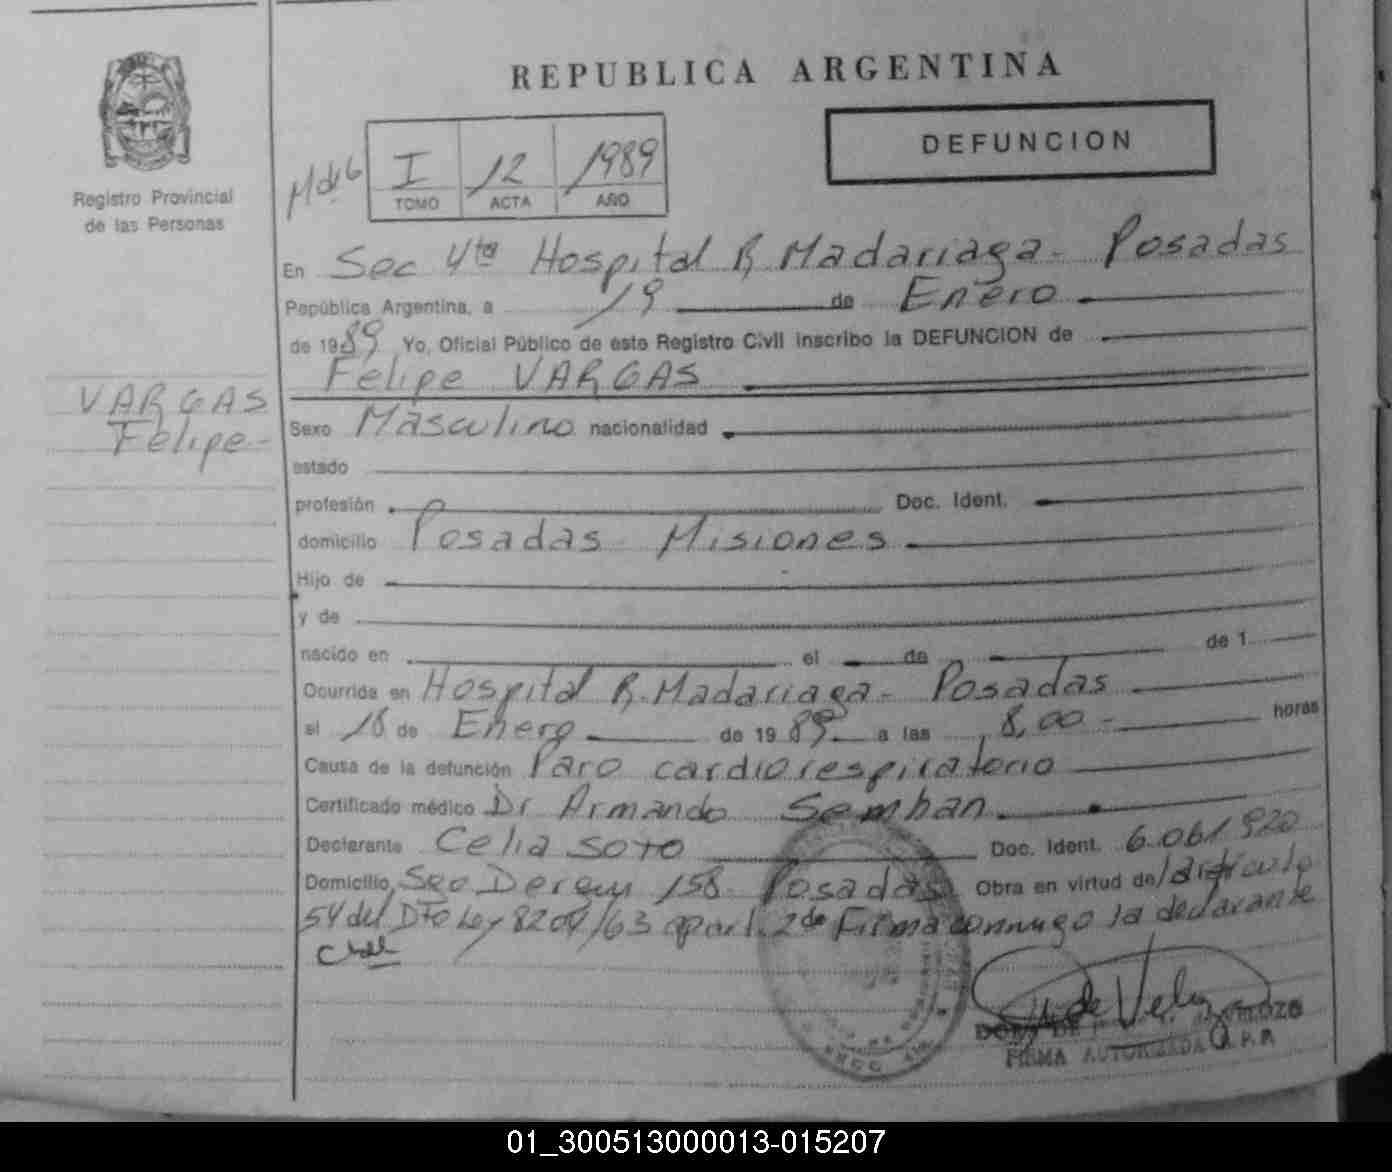 REPUBLICA ARGENTINA
DEFUNCION
Registro Provincial
de las Personas
I 12 1989
TOMO ACTA AÑO
En Sec 4ta Hospital R. Madariaga - Posadas
República Argentina, a 19 de Enero
de 1989 Yo, Oficial Público de este Registro Civil inscribo la DEFUNCION de
Felipe VARGAS
VARGAS
Felipe -
Sexo Masculino nacionalidad
estado
profesión Doc. Ident.
domicilio Posadas Misiones
Hijo de
y de
nacido en el de de 1
Ocurrida en Hospital R. Madariaga - Posadas
el 18 de Enero de 1989 a las 8,00 - horas
Causa de la defunción Paro cardiorespiratorio
Certificado médico Dr Armando Semhan
Declarante Celia SOTO Doc. Ident. 6.061.920
Domicilio Sgo Derqui 158 Posadas Obra en virtud de l artículo
54 del Dto Ley 8204/63 apart. 2do Firma conmigo la declarante
FIRMA AUTORIZADA R.P.P.
01_300513000013-015207